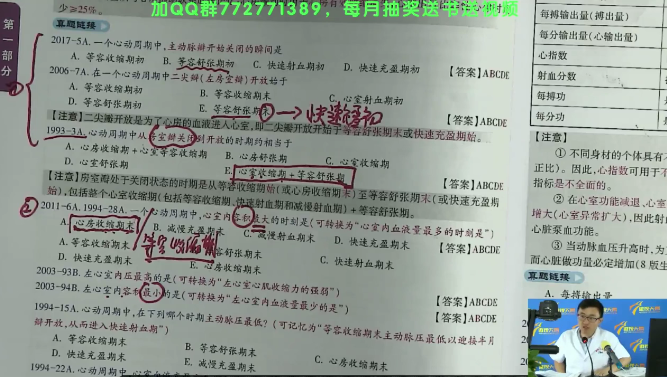 加QQ群772771389，每月抽奖送书送视频
少≥25%。
第一部分
真题链接
2017-5A.一个心动周期中，主动脉瓣开始关闭的瞬间是
A. 等容收缩期初 B. 等容舒张期初 C. 快速射血期初 D. 快速充盈期初 【答案】ABCDE
2006-7A.在一个心动周期中二尖瓣(左房室瓣)开放始于
A. 等容收缩期初 B. 等容收缩期末 C. 心室射血期初
D. 等容舒张期初 E. 等容舒张期末 快速充盈初 【答案】ABCDE
【注意】二尖瓣开放是为了心房的血液进入心室，即二尖瓣开放开始于等容舒张期末或快速充盈期始。
1993-3A.心动周期中从房室瓣关闭到开放的时期约相当于
A. 心房收缩期+心室等容收缩期 B. 心房舒张期 C. 心室收缩期
D. 心室舒张期 E. 心室收缩期+等容舒张期 【答案】ABCDE
【注意】房室瓣处于关闭状态的时期是从等容收缩期始(或心房收缩期末)至等容舒张期末(或快速充盈期
始)，包括整个心室收缩期(包括等容收缩期、快速射血期和减慢射血期)+等容舒张期。
2011-6A.1994-28A.一个心动周期中，心室内容积最大的时刻是(可转换为“心室内血液量最多的时刻是”)
A. 心房收缩期末 B. 减慢充盈期末 C. 减慢射血期末 D. 快速充盈期末
A. 等容收缩期末 等容收缩期 等容舒张期末 C. 快速射血期末
D. 快速充盈期末 E. 心房收缩期末 【答案】ABCDE
2003-93B.左心室内压最高的是(可转换为“左心室心肌收缩力的强弱”) 【答案】ABCDE
2003-94B.左心室内容积最小的是(可转换为“左心室内血液量最少的是”) 【答案】ABCDE
1994-15A.心动周期中，在下列哪个时期主动脉压最低？(可记忆为“等容收缩期末主动脉压最低以迎接半月
瓣开放，从而进入快速射血期”)
A. 等容收缩期末 B. 等容舒张期末 C. 心房收缩期末
D. 快速充盈期末 E. 减慢充盈期末 【答案】ABCDE
1994-22A.心动周期中
每搏输出量(搏出量)
每分输出量(心输出量)
心指数
射血分数
每搏功
每分功
【注意】
① 不同身材的个体具有不
正比)。因此，心指数可用于不
指标是不全面的。
② 在心室功能减退、心室
增大(心室异常扩大)，因此射血
心脏泵血功能。
③ 当动脉血压升高时，为
而心脏做功量必定增加(8版生
真题链接
A. 每搏输出量